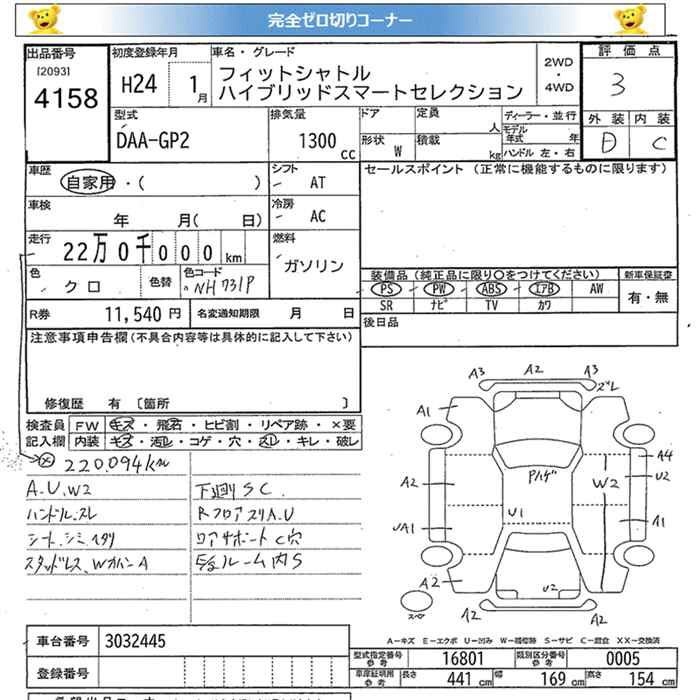 完全ゼロ切りコーナー
出品番号 初度登録年月 車名・グレード 評価点
[2093] 4158 H24 1月 フィットシャトル 2WD 3
ハイブリッドスマートセレクション ・4WD
外装 内装
D C
型式 排気量 ドア 定員 人 ディーラー・並行
DAA-GP2 1300cc 形状 W 積載 kg モデル年式 年
ハンドル 左・右
車歴 自家用・( ) シフト AT セールスポイント (正常に機能するものに限ります)
車検 年 月( 日) 冷房 AC
走行 22万0千000km 燃料 ガソリン
色 クロ 色替 色コード NH731P
装備品(純正品に限り○をつけてください) 新車保証書
PS PW ABS エアB AW 有・無
SR ナビ TV カワ
R券 11,540円 名変通知期限 月 日 後日品
注意事項申告欄(不具合内容等は具体的に記入して下さい)
修復歴 有 〔箇所 〕
検査員 FW キズ・飛石・ヒビ割・リペア跡・×要
記入欄 内装 キズ・汚レ・コゲ・穴・スレ・キレ・破レ
220,094km
A.U.W2 下廻りSC.
ハンドルスレ RフロアスリA.U
シート.シミ.ヘタリ ロアサポートC穴
スタッドレス.WカバーA E/gルーム内S
A3 A2 A3
ズレ
A1
A4
Pハゲ
A2 W2 U2
U1
UA1 A1
A2 U2
スペア A2 A2
A−キズ E−エクボ U−凹み W−補修跡 S−サビ C−腐食 XX−交換済
車台番号 3032445
型式指定番号 参考 16801 類別区分番号 参考 0005
登録番号 車庫証明用 参考 長さ 441 cm 幅 169 cm 高さ 154 cm